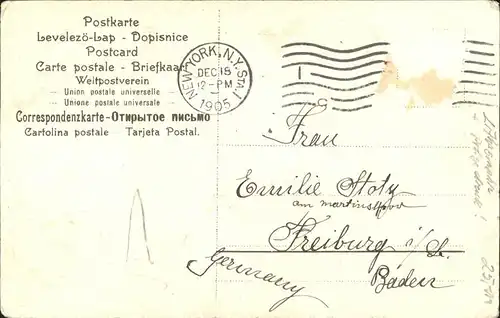 Postkarte
Levelezö-Lap - Dopisnice
Postcard
Carte postale - Briefkaart
Weltpostverein
— Union postale universelle —
— Unione postale universale —
Correspondenzkarte - Открытое письмо
Cartolina postale Tarjeta Postal.
NEW YORK, N.Y. Sta. I
DEC 18
12-PM
1905
Frau
Emilie Stotz
am martinsthor
Freiburg i/B.
Baden
Germany